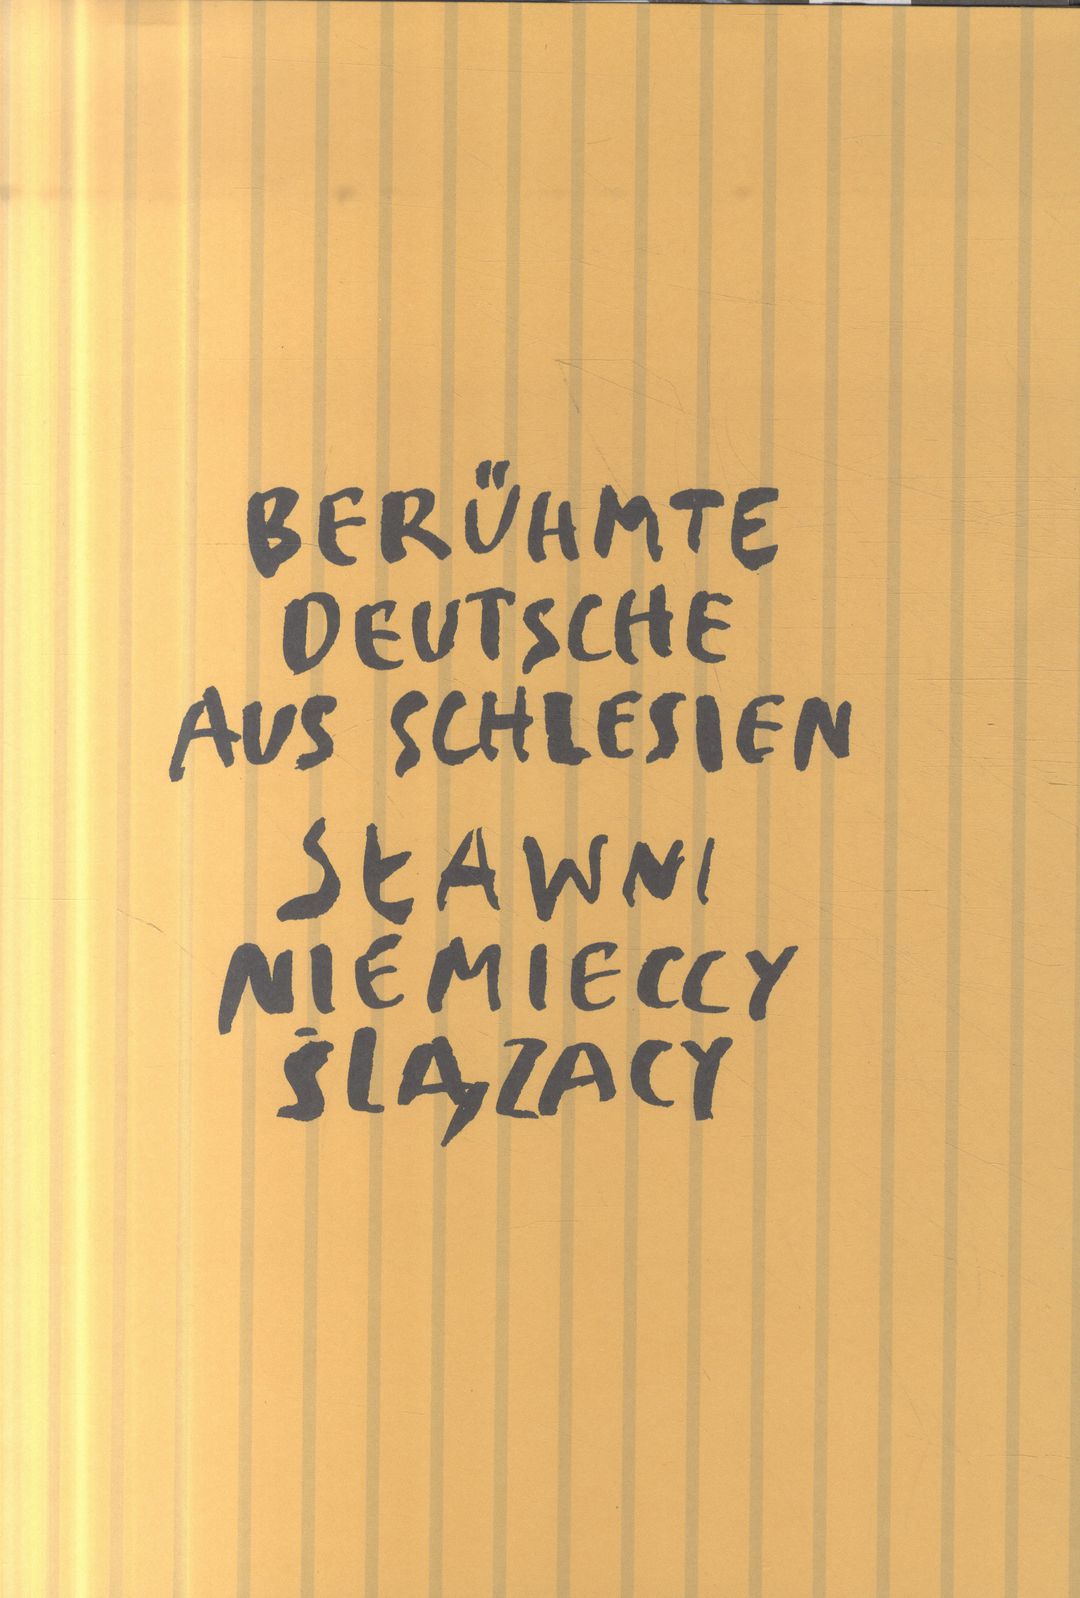 BERÜHMTE
DEUTSCHE
AUS SCHLESIEN
SŁAWNI
NIEMIECCY
ŚLĄZACY